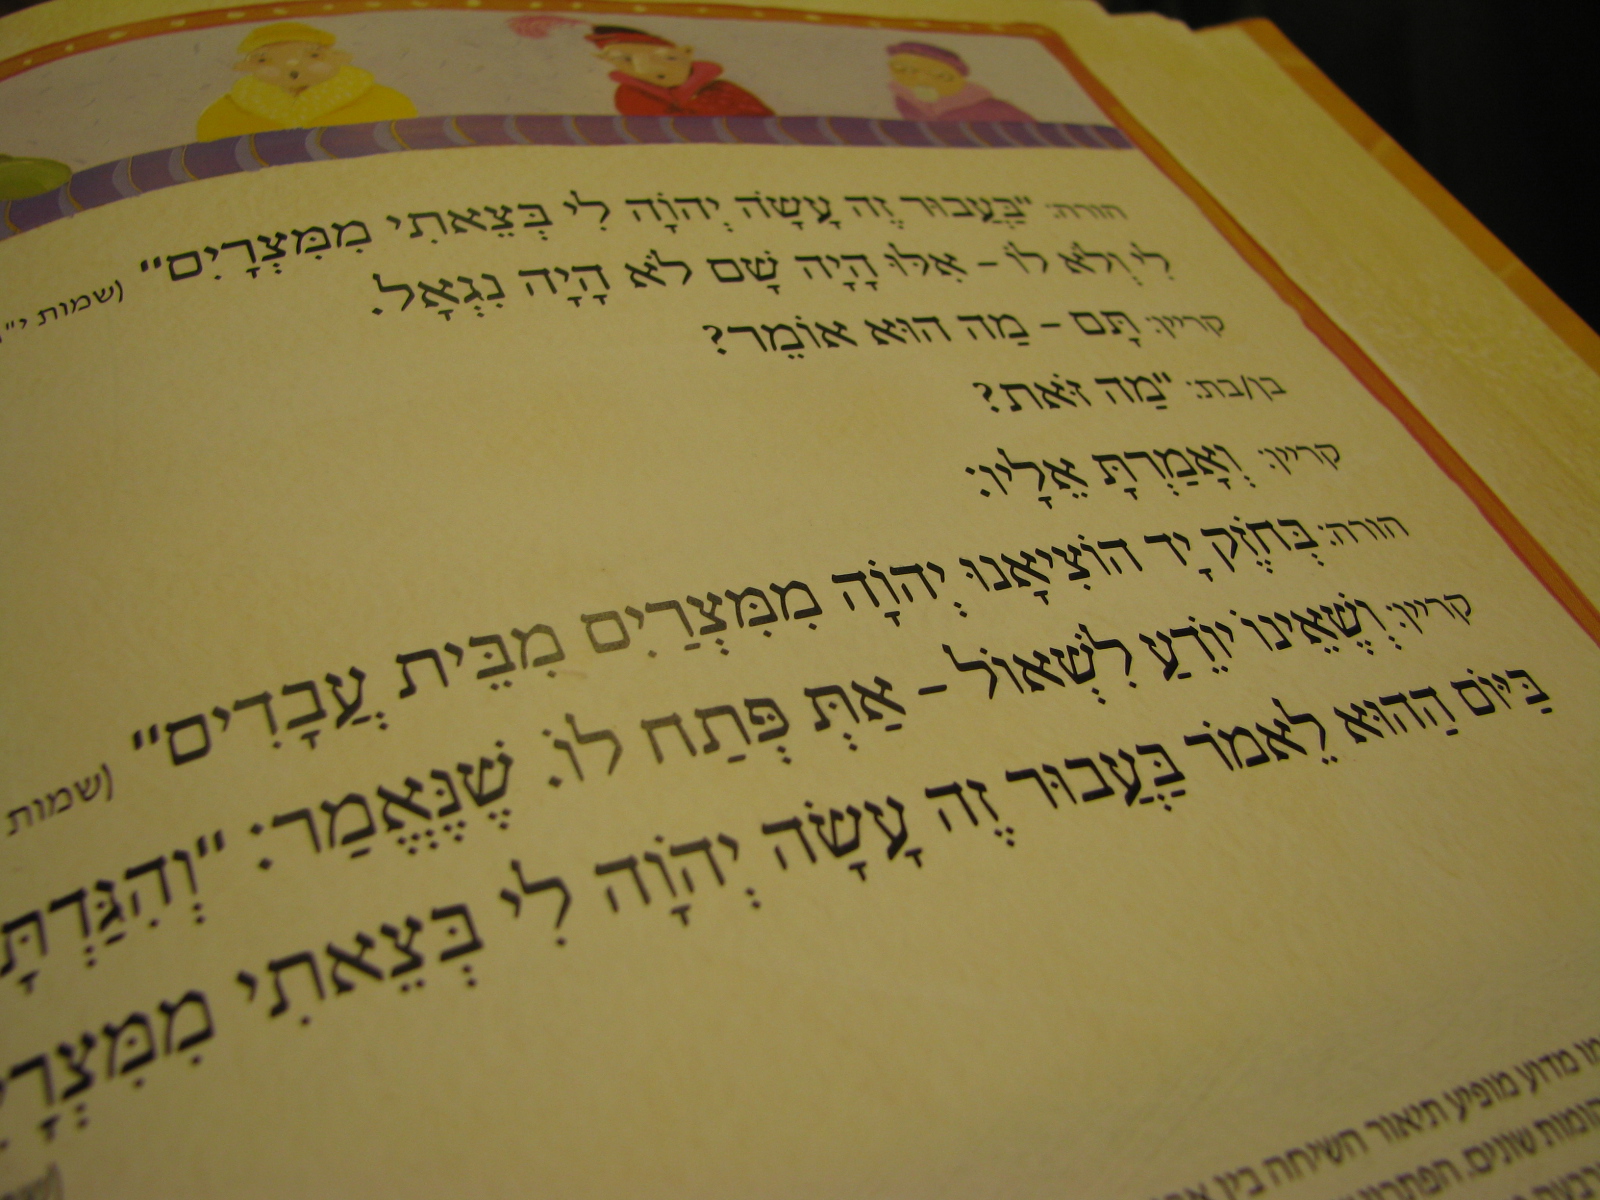 הורה: "בַּעֲבוּר זֶה עָשָׂה יְהֹוָה לִי בְּצֵאתִי מִמִּצְרָיִם" (שמות י"
לִי וְלֹא לוֹ – אִלּוּ הָיָה שָׁם לֹא הָיָה נִגְאָל.
קריין: תָּם – מַה הוּא אוֹמֵר?
בן/בת: "מַה זֹּאת?
קריין: וְאָמַרְתָּ אֵלָיו:
הורה: בְּחֹזֶק יָד הוֹצִיאָנוּ יְהֹוָה מִמִּצְרַיִם מִבֵּית עֲבָדִים" (שמות
קריין: וְשֶׁאֵינוֹ יוֹדֵעַ לִשְׁאוֹל – אַתְּ פְּתַח לוֹ. שֶׁנֶּאֱמַר: "וְהִגַּדְתָּ
בַּיּוֹם הַהוּא לֵאמֹר בַּעֲבוּר זֶה עָשָׂה יְהֹוָה לִי בְּצֵאתִי מִמִּצְרָיִ
מדוע מופיע תיאור השיחה בין
שונים.